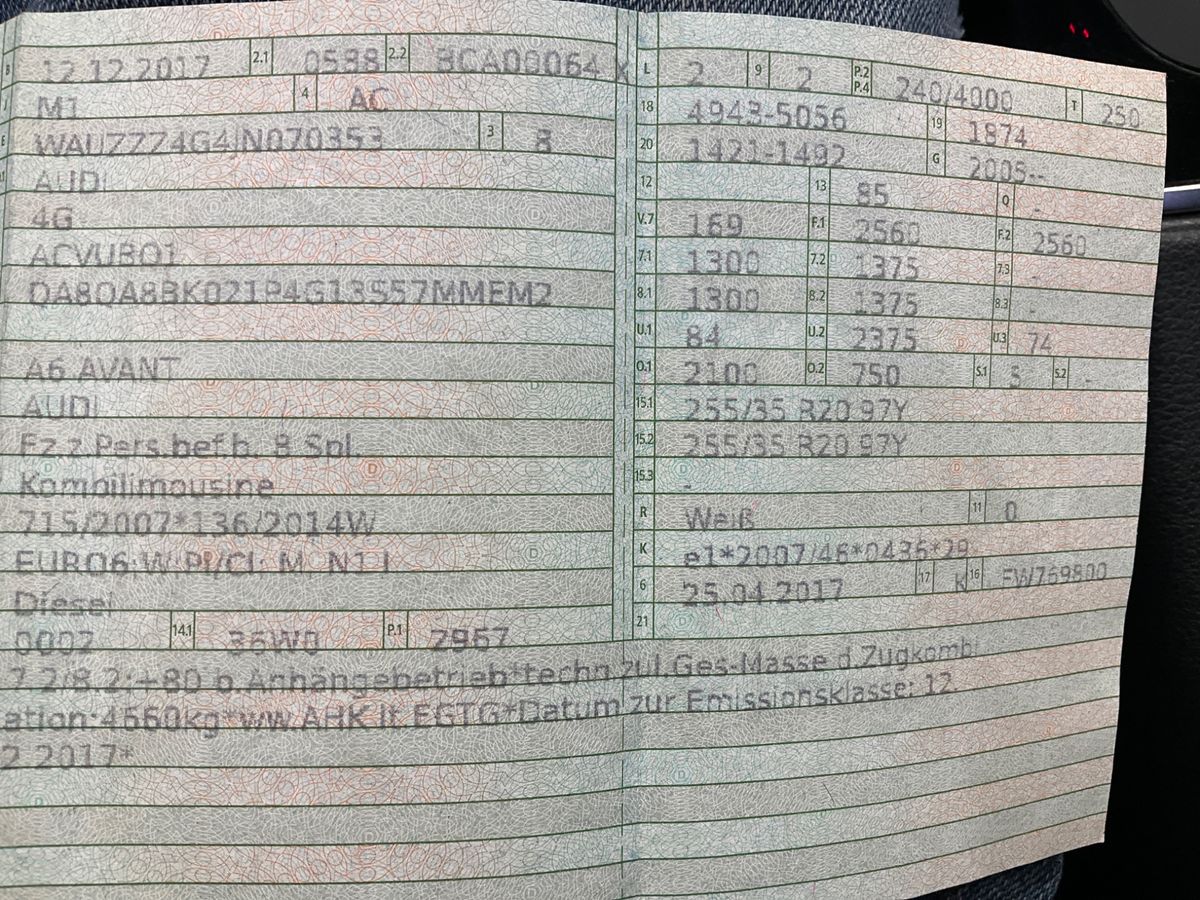 B 12.12.2017 2.1 0588 2.2 BCA00064 X
J M1 4 AC
E WAUZZZ4G4JN070353 3 8
AUDI
4G
ACVUBO1
QA8QA8BK021P4G13S57MMEM2
A6 AVANT
AUDI
Fz.z.Pers.bef.b. 8 Spl.
Kombilimousine
715/2007*136/2014W
EURO6;W;PI/CI; M, N1 I
Diesel
0002 14.1 36W0 P.1 2967
L 2 9 2 P.2 P.4 240/4000 T 250
18 4943-5056 19 1874
20 1421-1492 G 2005--
12 13 85 Q -
V.7 169 F.1 2560 F.2 2560
7.1 1300 7.2 1375 7.3 -
8.1 1300 8.2 1375 8.3 -
U.1 84 U.2 2375 U.3 74
O.1 2100 O.2 750 S.1 5 S.2 -
15.1 255/35 R20 97Y
15.2 255/35 R20 97Y
15.3 -
R Weiß 11 0
K e1*2007/46*0436*29
6 25.04.2017 17 K 16 FW769800
21
7.2/8.2:+80 b.Anhängebetrieb*techn.zul.Ges-Masse d.Zugkombi
ation:4660kg*ww.AHK lt.EGTG*Datum zur Emissionsklasse: 12.
2.2017*